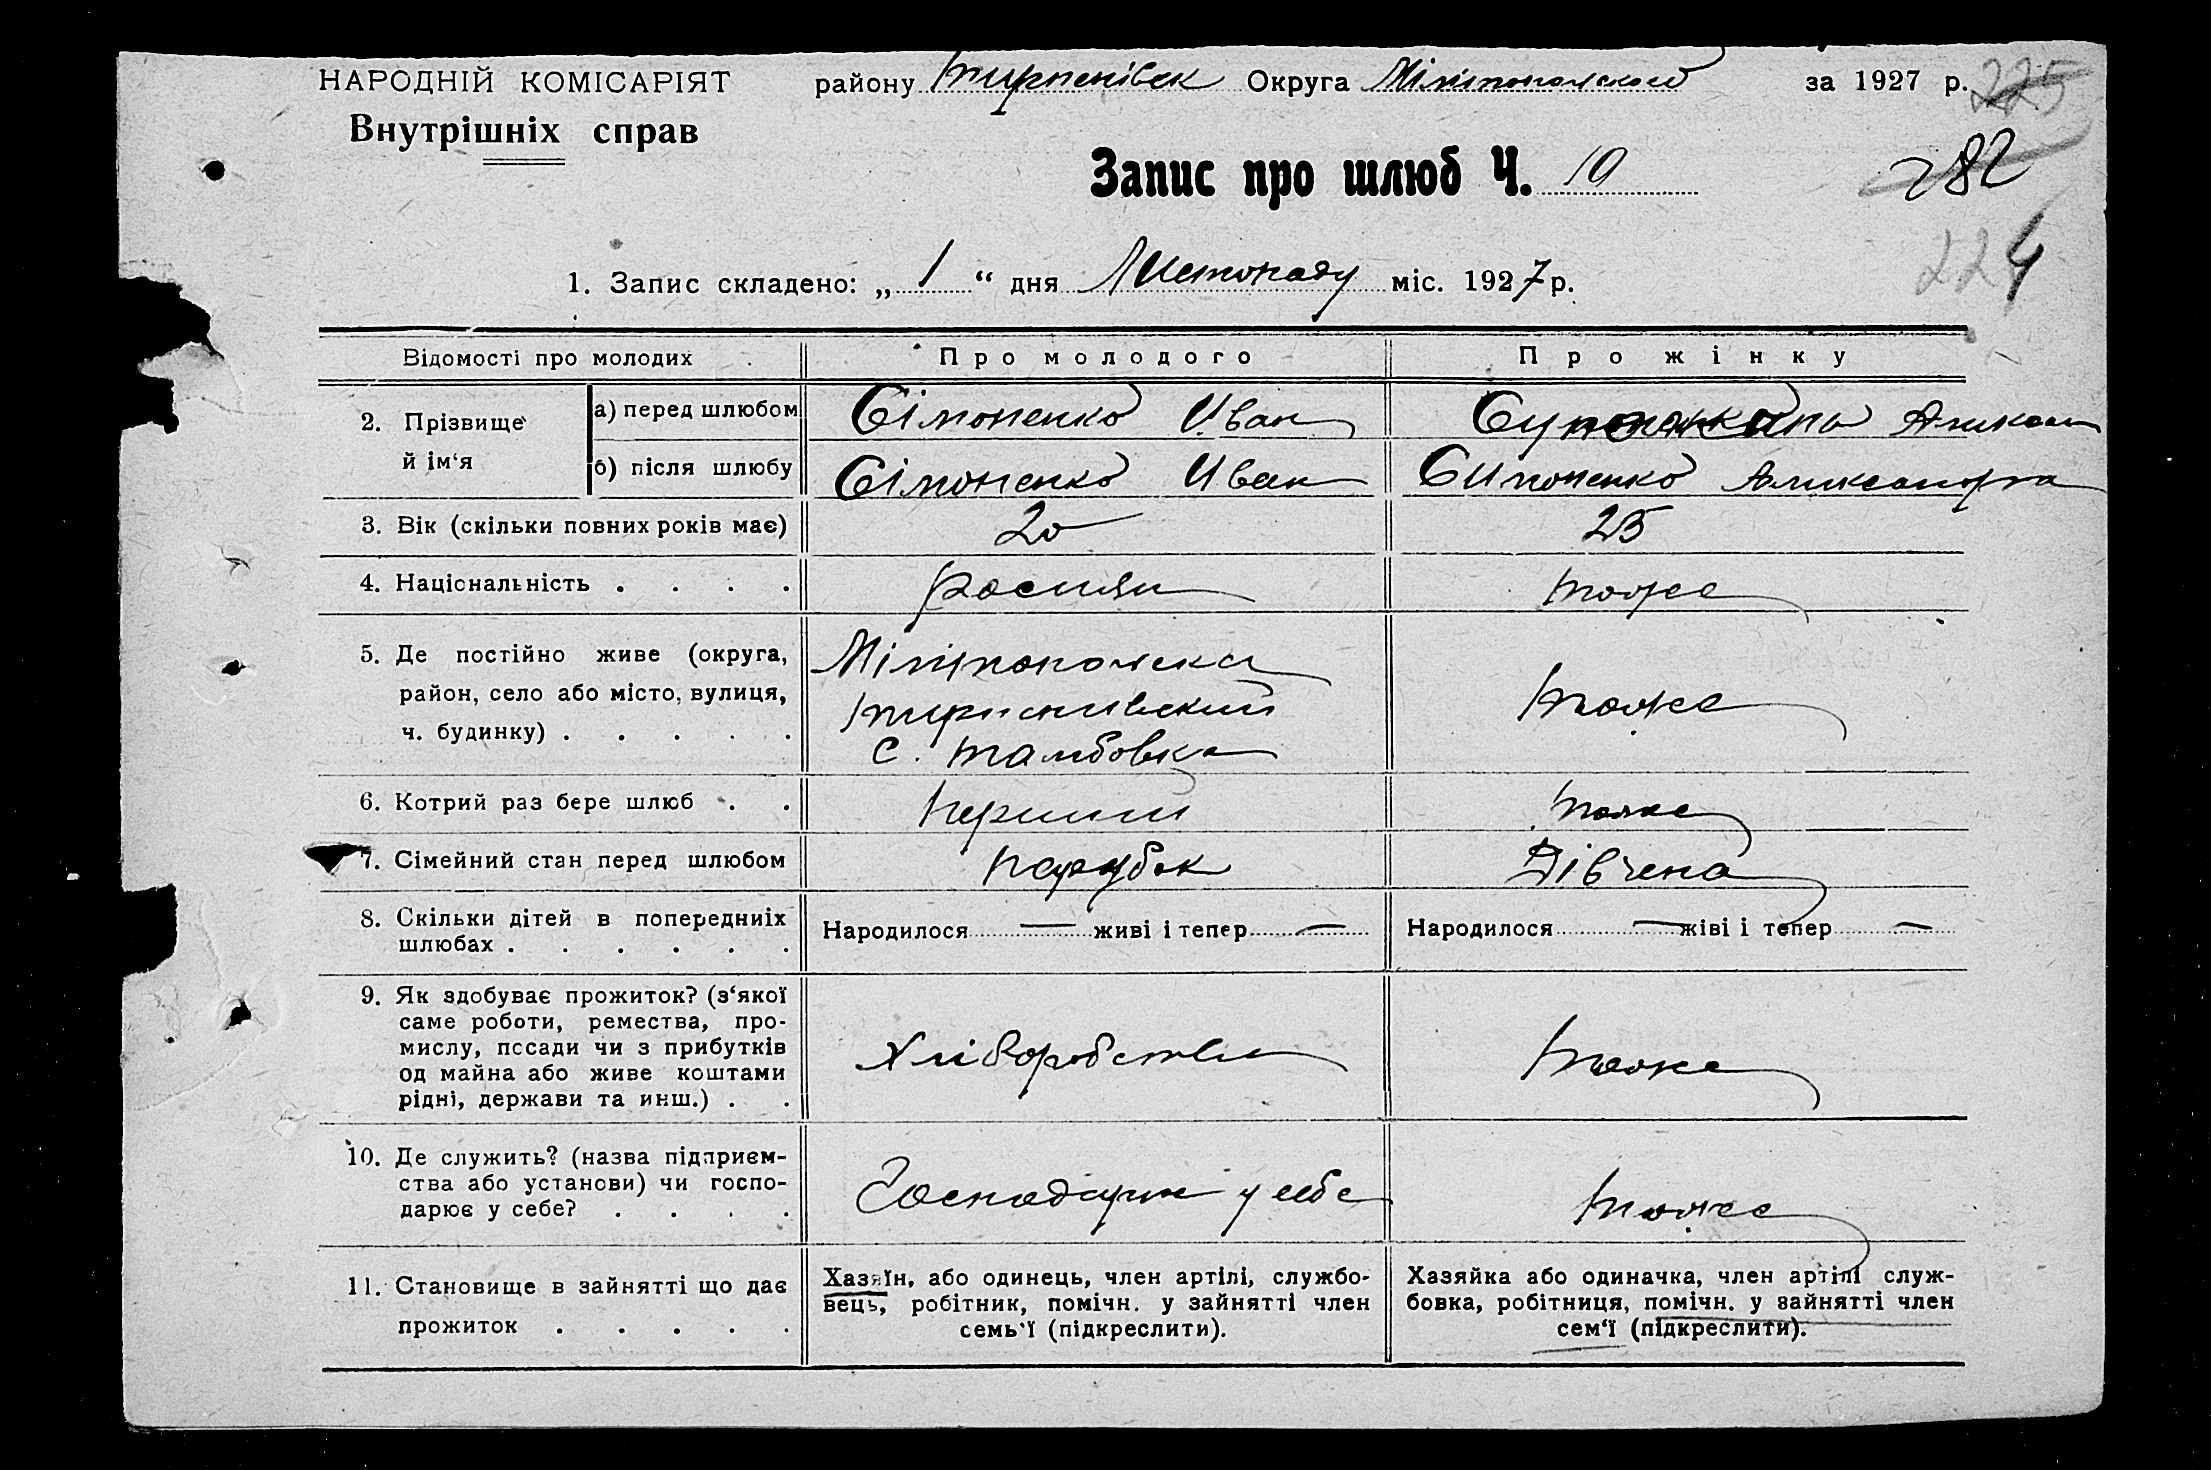 НАРОДНІЙ КОМІСАРІЯТ
Внутрішніх справ
району Тирпенівск Округа Мілітопольского за 1927 р.
225
282
224
Запис про шлюб Ч. 10
1. Запис складено: „ 1 “ дня Листопаду міс. 1927 р.
Відомості про молодих Про молодого Про жінку
2. Прізвище й ім‘я
а) перед шлюбом Сімоненко Иван
б) після шлюбу Сімоненко Иван Симоненко Александра
3. Вік (скільки повних років має) 20 25
4. Національність . . . . росиян тоже
5. Де постійно живе (округа,
район, село або місто, вулиця,
ч. будинку) . . . . .
Мілітопольска
Тирпенивский
с. Тамбовка
тоже
6. Котрий раз бере шлюб . . Перший тоже
7. Сімейний стан перед шлюбом парубок Дівчена
8. Скільки дітей в попередниіх
шлюбах . . . . . .
Народилося — живі і тепер —
Народилося — жіві і тепер —
9. Як здобуває прожиток? (з‘якої
саме роботи, ремества, про-
мислу, пссади чи з прибутків
од майна або живе коштами
рідні, держави та инш.) . .
Хліборобства
тоже
10. Де служить? (назва підприєм-
ства або установи) чи госпо-
дарює у себе? . . . .
у себе
тоже
11. Становище в зайнятті що дає
прожиток . . . . .
Хазяїн, або одинець, член артілі, службо-
вець, робітник, помічн. у зайнятті член
семь'ї (підкреслити).
Хазяйка або одиначка, член артілі служ-
бовка, робітниця, помічн. у зайнятті член
сем‘ї (підкреслити).